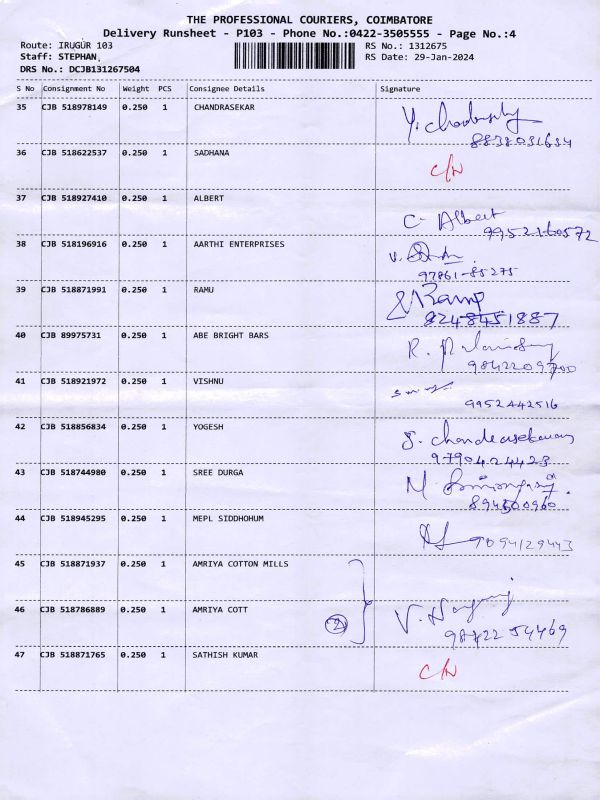 THE PROFESSIONAL COURIERS, COIMBATORE
Delivery Runsheet - P103 - Phone No.:0422-3505555 - Page No.:4
Route: IRUGUR 103 RS No.: 1312675
Staff: STEPHAN, RS Date: 29-Jan-2024
DRS No.: DCJB131267504
S No Consignment No Weight PCS Consignee Details Signature
35 CJB 518978149 0.250 1 CHANDRASEKAR
8838031634
36 CJB 518622537 0.250 1 SADHANA C/N
37 CJB 518927410 0.250 1 ALBERT C. Albert
9952160572
38 CJB 518196916 0.250 1 AARTHI ENTERPRISES
97861-85275
39 CJB 518871991 0.250 1 RAMU
8248451887
40 CJB 89975731 0.250 1 ABE BRIGHT BARS
9842209700
41 CJB 518921972 0.250 1 VISHNU
9952442516
42 CJB 518856834 0.250 1 YOGESH
9790424423
43 CJB 518744980 0.250 1 SREE DURGA
44 CJB 518945295 0.250 1 MEPL SIDDHOHUM 9094129443
45 CJB 518871937 0.250 1 AMRIYA COTTON MILLS
46 CJB 518786889 0.250 1 AMRIYA COTT 2
47 CJB 518871765 0.250 1 SATHISH KUMAR C/N